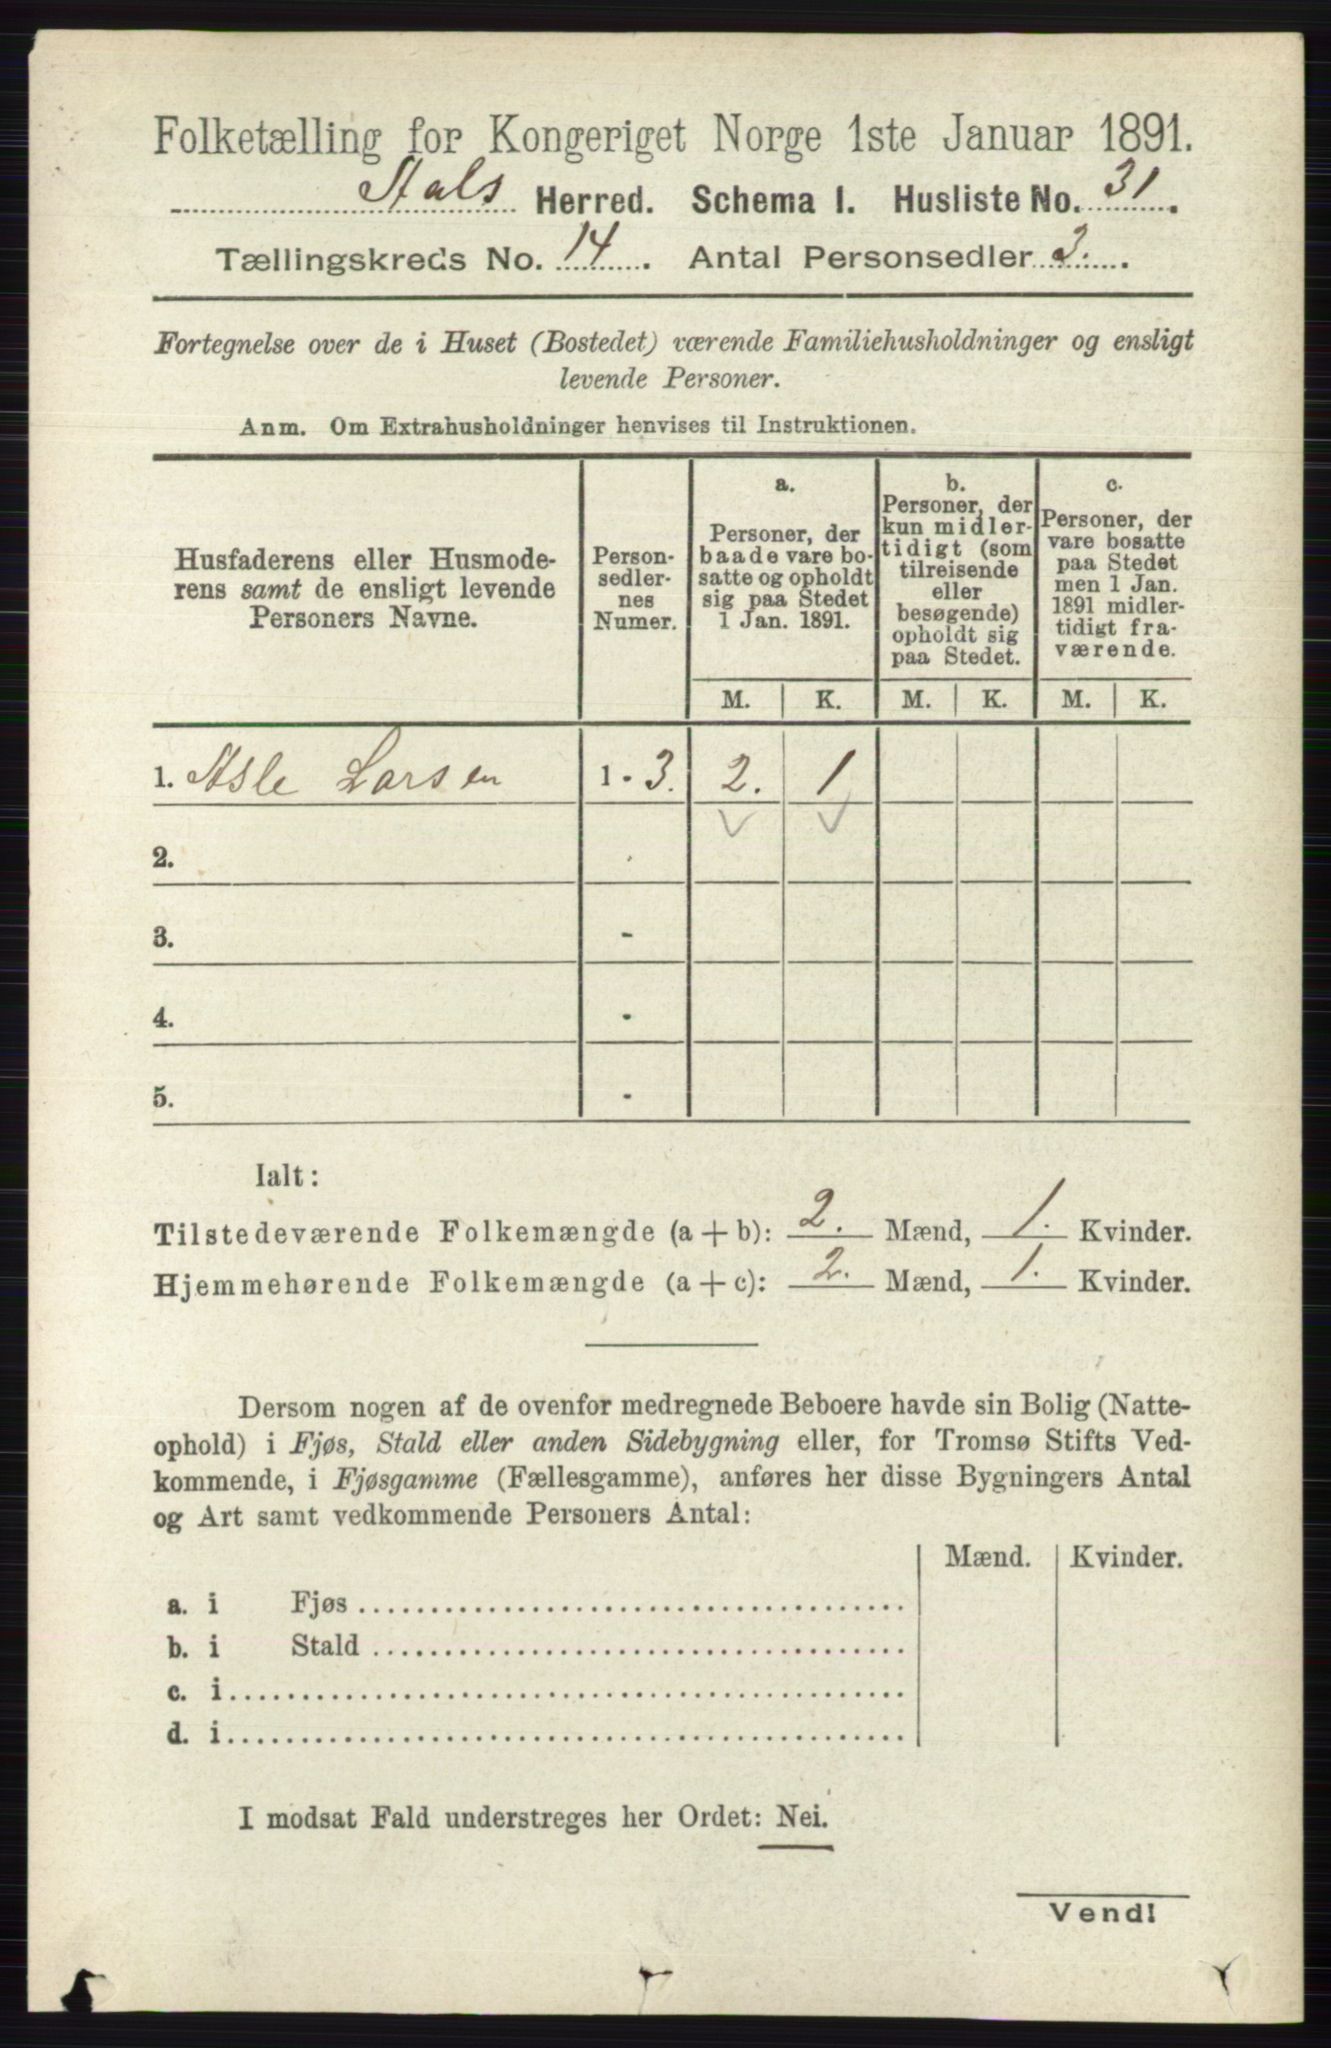 Folketælling for Kongeriget Norge 1ste Januar 1891.
Aals Herred. Schema I. Husliste No. 31.
Tællingskreds No. 14. Antal Personsedler 3.
Fortegnelse over de i Huset (Bostedet) værende Familiehusholdninger og ensligt
levende Personer.
Anm. Om Extrahusholdninger henvises til Instruktionen.
Husfaderens eller Husmode-
rens samt de ensligt levende
Personers Navne.
Person-
sedler-
nes
Numer.
a.
Personer, der
baade vare bo-
satte og opholdt
sig paa Stedet
1 Jan. 1891.
b.
Personer, der
kun midler-
tidigt (som
tilreisende
eller
besøgende)
opholdt sig
paa Stedet.
c.
Personer, der
vare bosatte
paa Stedet
men 1 Jan.
1891 midler-
tidigt fra-
værende.
M. K. M. K. M. K.
1. Asle Larsen 1 - 3. 2. 1
2.
3. -
4. -
5. -
Ialt:
Tilstedeværende Folkemængde (a + b): 2. Mænd, 1. Kvinder.
Hjemmehørende Folkemængde (a + c): 2. Mænd, 1. Kvinder.
Dersom nogen af de ovenfor medregnede Beboere havde sin Bolig (Natte-
ophold) i Fjøs, Stald eller anden Sidebygning eller, for Tromsø Stifts Ved-
kommende, i Fjøsgamme (Fællesgamme), anføres her disse Bygningers Antal
og Art samt vedkommende Personers Antal:
Mænd. Kvinder.
a. i Fjøs
b. i Stald
c. i
d. i
I modsat Fald understreges her Ordet: Nei.
Vend!